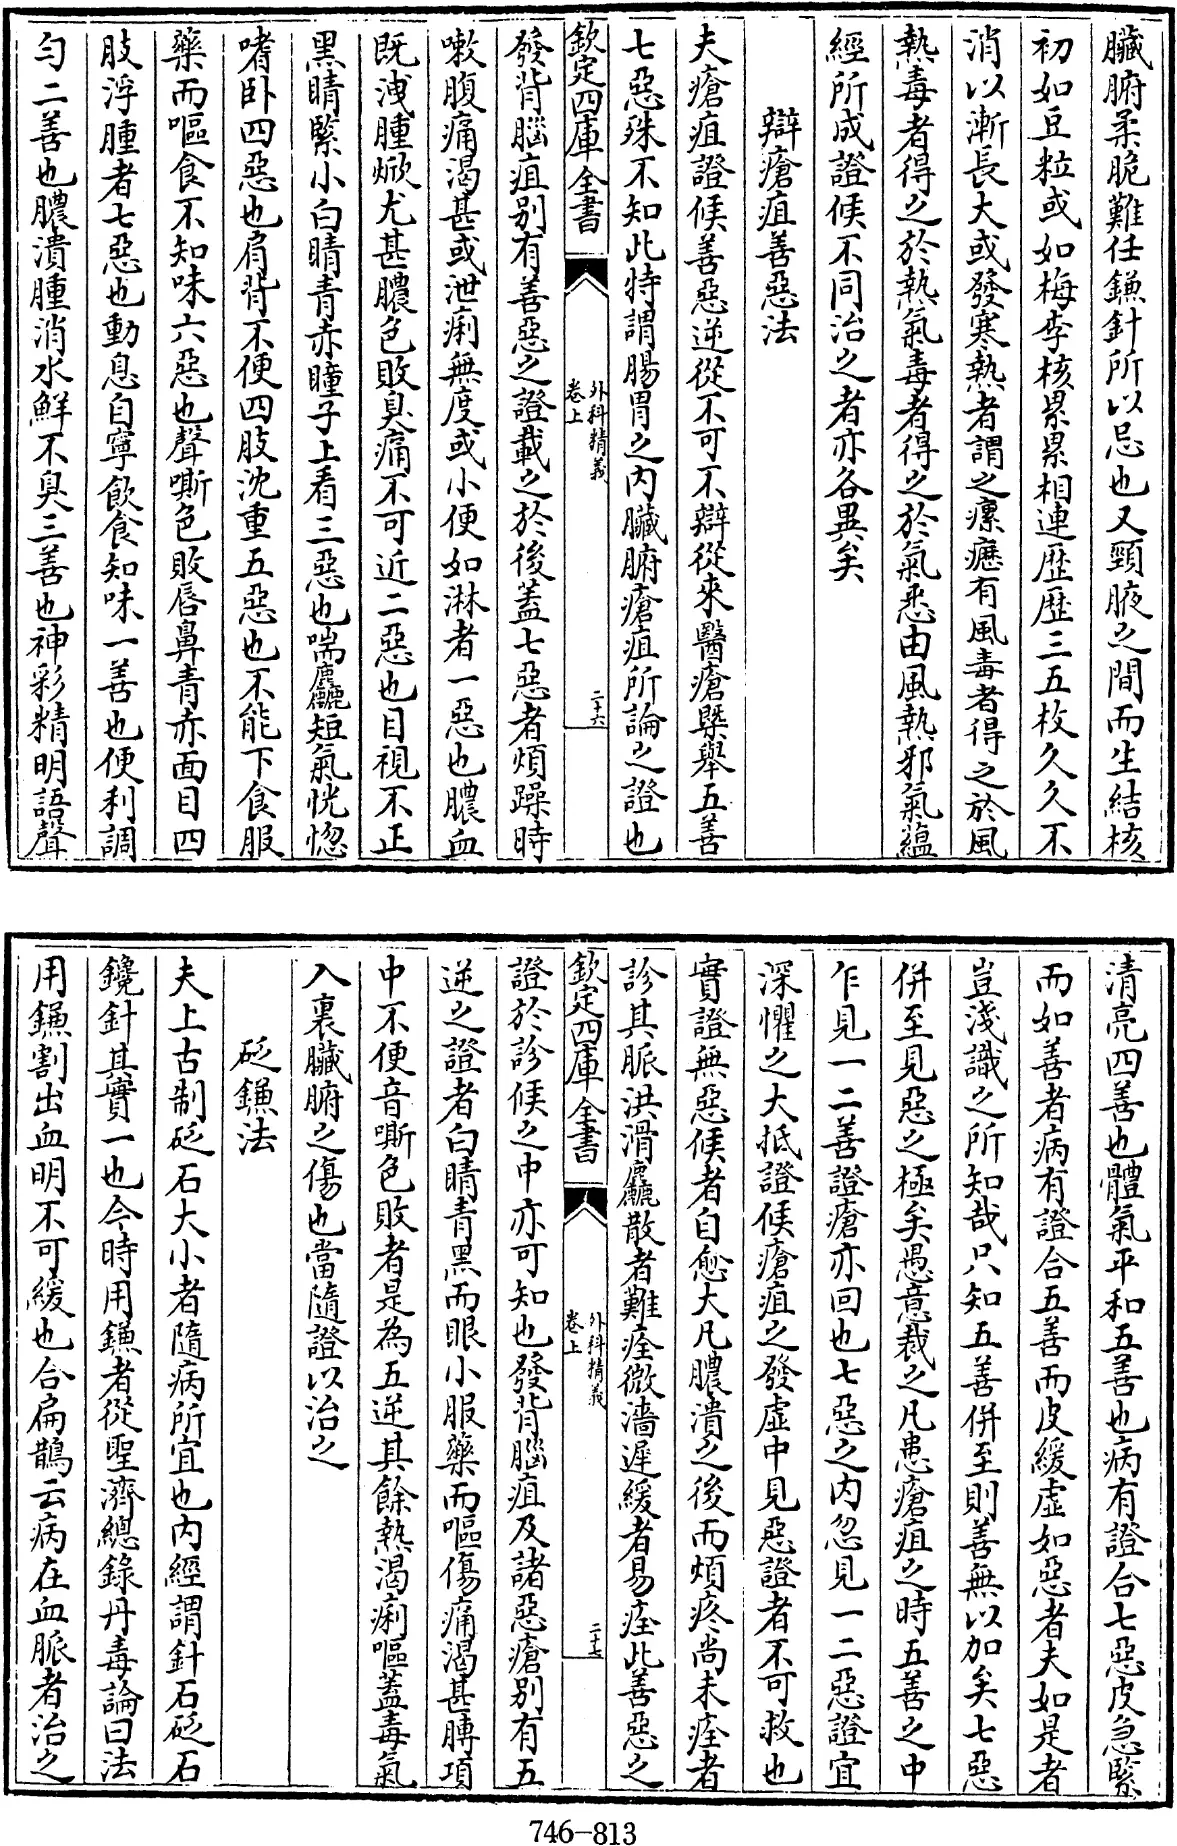 臟腑柔脆難任鐮針所以忌也又頸腋之間而生結核
初如豆粒或如梅李核累累相連歷歷三五枚久久不
消以漸長大或發寒熱者謂之瘰癧有風毒者得之於風
熱毒者得之於熱氣毒者得之於氣悉由風熱邪氣蘊
經所成證候不同治之者亦各異矣
辯瘡疽善惡法
夫瘡疽證候善惡逆從不可不辯從來醫瘡槩舉五善
七惡殊不知此特謂腸胃之內臟腑瘡疽所論之證也
欽定四庫全書
外科精義
卷上
二十六
發背腦疽別有善惡之證載之於後蓋七惡者煩躁時
嗽腹痛渴甚或泄痢無度或小便如淋者一惡也膿血
既洩腫焮尤甚膿色敗臭痛不可近二惡也目視不正
黑睛緊小白睛青赤瞳子上看三惡也喘麤短氣恍惚
嗜卧四惡也肩背不便四肢沈重五惡也不能下食服
藥而嘔食不知味六惡也聲嘶色敗唇鼻青赤面目四
肢浮腫者七惡也動息自寧飲食知味一善也便利調
勻二善也膿潰腫消水鮮不臭三善也神彩精明語聲
清亮四善也體氣平和五善也病有證合七惡皮急緊
而如善者病有證合五善而皮緩虛如惡者夫如是者
豈淺識之所知哉只知五善併至則善無以加矣七惡
併至見惡之極矣愚意裁之凡患瘡疽之時五善之中
乍見一二善證瘡亦回也七惡之內忽見一二惡證宜
深懼之大抵證候瘡疽之發虛中見惡證者不可救也
實證無惡候者自愈大凡膿潰之後而煩疼尚未痊者
診其脈洪滑麤散者難痊微濇遲緩者易痊此善惡之
欽定四庫全書
外科精義
卷上
二十七
證於診候之中亦可知也發背腦疽及諸惡瘡別有五
逆之證者白睛青黑而眼小服藥而嘔傷痛渴甚膊項
中不便音嘶色敗者是為五逆其餘熱渴痢嘔蓋毒氣
入裏臟腑之傷也當隨證以治之
砭鐮法
夫上古制砭石大小者隨病所宜也內經謂針石砭石
鑱針其實一也今時用鐮者從聖濟總錄丹毒論曰法
用鐮割出血明不可緩也合扁鵲云病在血脈者治之
746-813